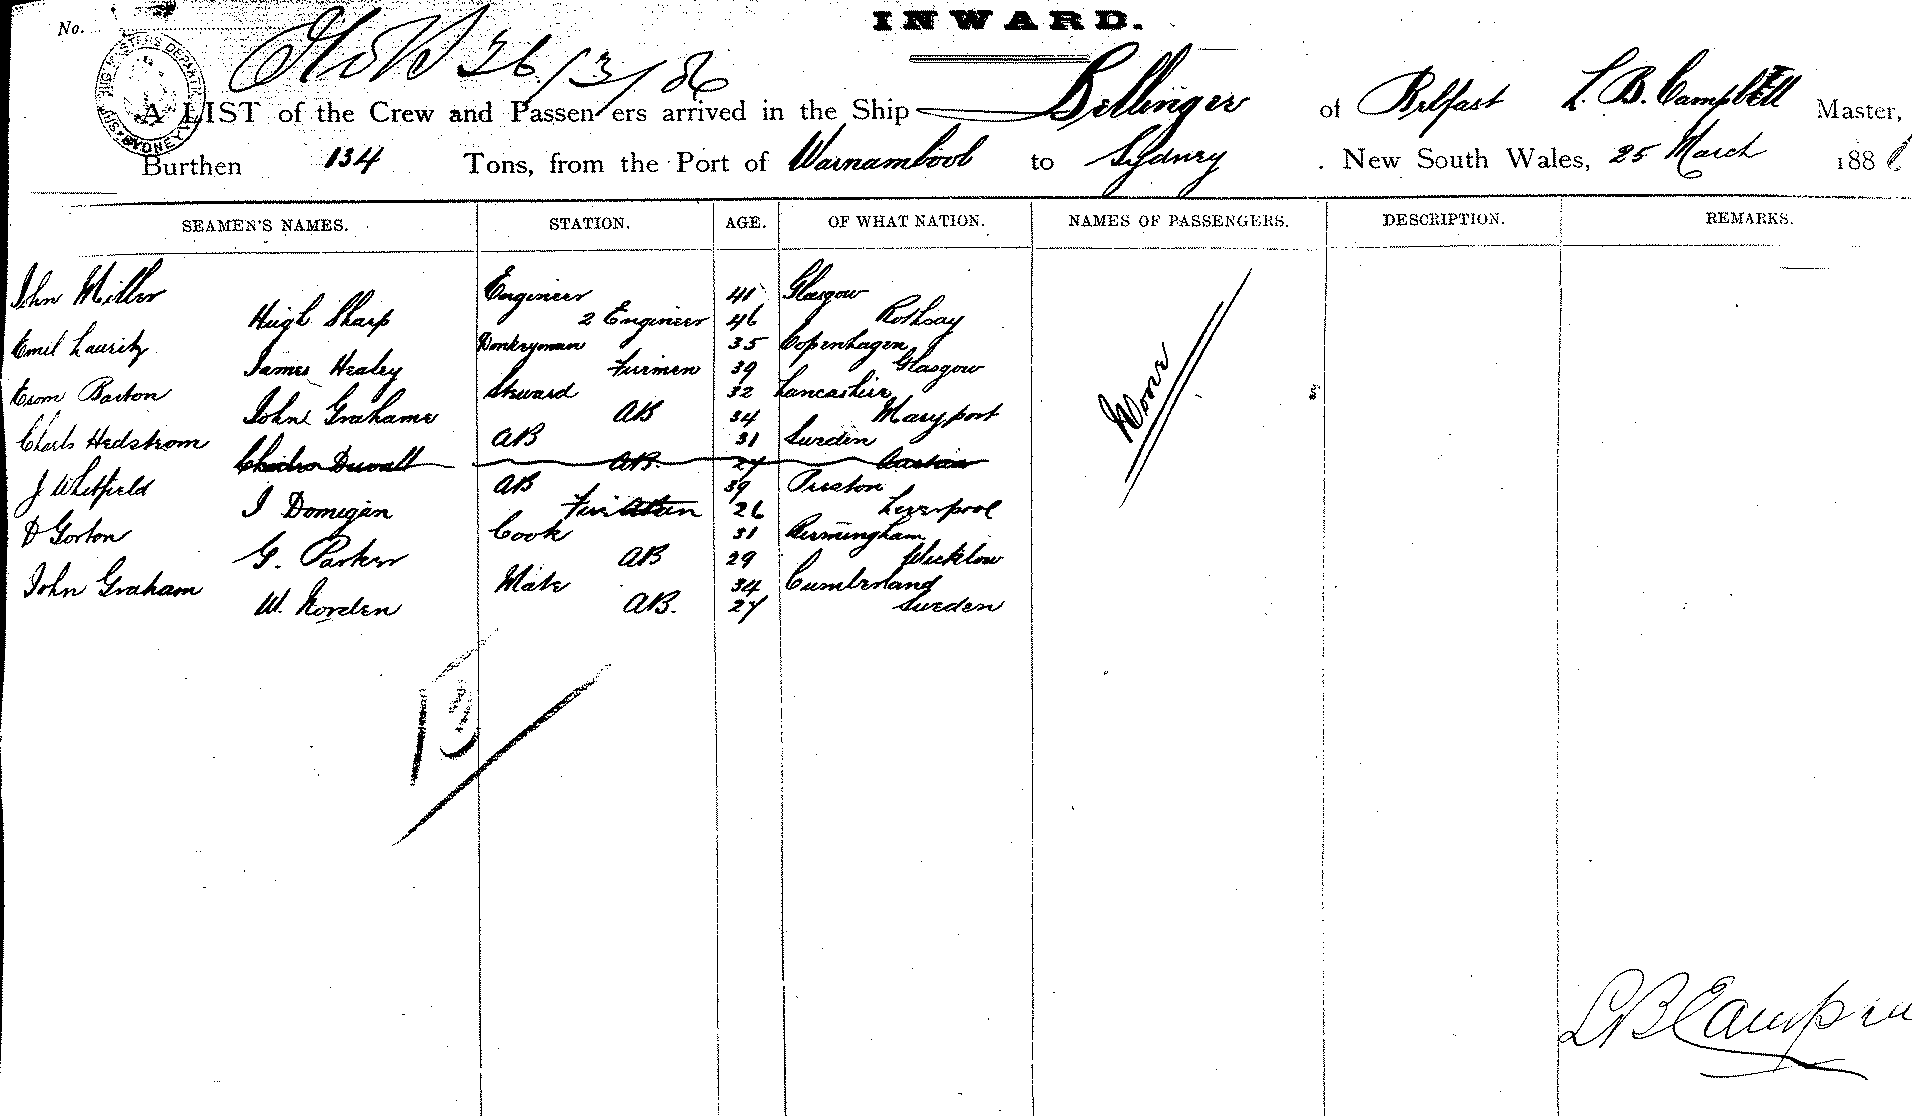 No.
INWARD.
26/3/86
SHIPPING MASTER'S DEPARTMENT SYDNEY
A LIST of the Crew and Passengers arrived in the Ship Bellinger of Belfast L. B. Campbell Master,
Burthen 134 Tons, from the Port of Warnambool to Sydney . New South Wales, 25 March 188
SEAMEN'S NAMES. STATION. AGE. OF WHAT NATION. NAMES OF PASSENGERS. DESCRIPTION. REMARKS.
John Miller Engineer 41 Glasgow
Hugh Sharp 2 Engineer 46 Rothsay
Emil Lauritz Donkeyman 35 Copenhagen
James Healey Firmen 39 Glasgow
Barton Steward 32 Lancashire
John Grahame AB 34 Maryport
Charls Hedstrom AB 31 Sweden
Charles Duvall AB. 27
J Whitfield AB 39 Preston
J Domigan 26 Liverpool
D Gorton Cook 31 Birmingham
G. Parker AB 29 Wicklow
John Graham Mate 34 Cumberland
W. Norden AB. 27 Sweden
None
13
L B Campbell